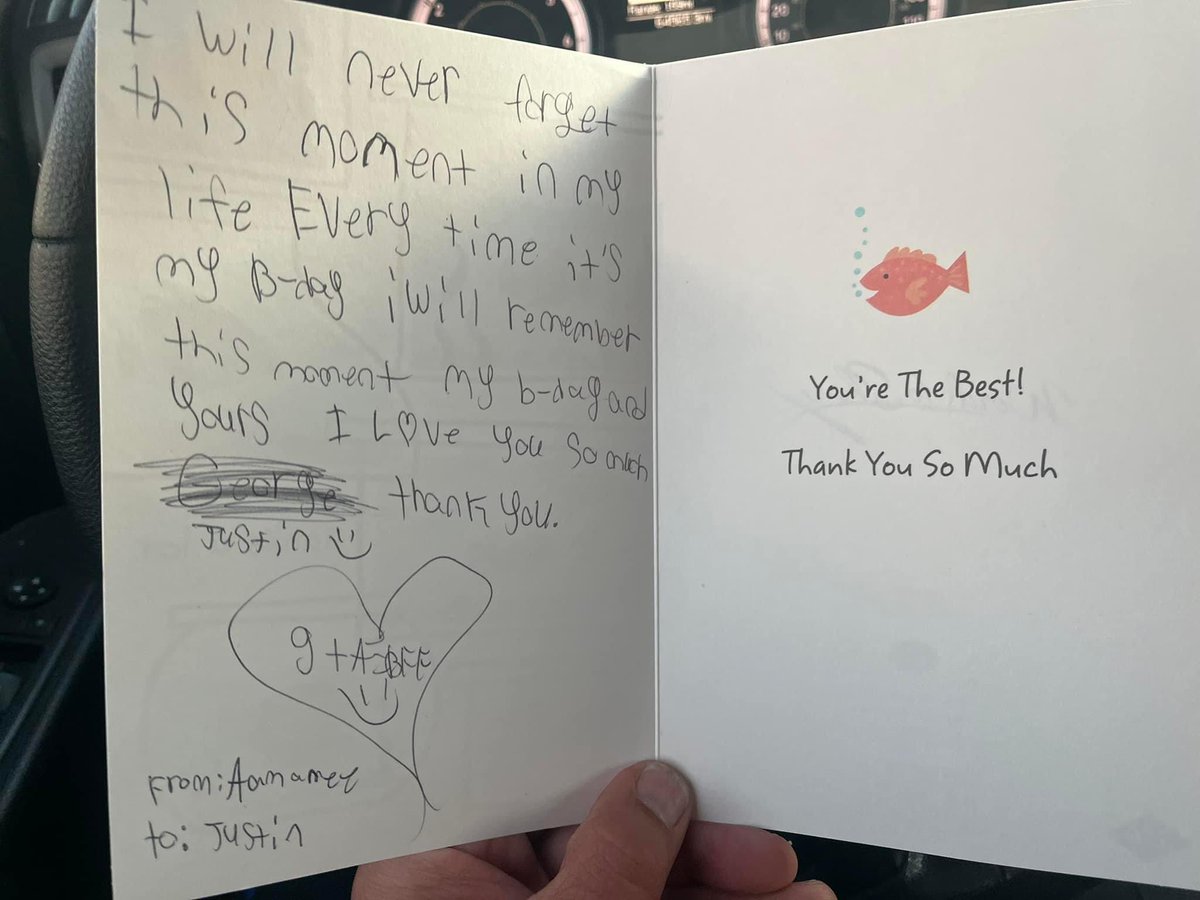 I will never forget
this moment in my
life Every time it's
my B-day i will remember
this moment my b-day and
yours I Love you so much
George thank you.
Justin
g + A = BFF
From:
to: Justin
You're The Best!
Thank You So Much